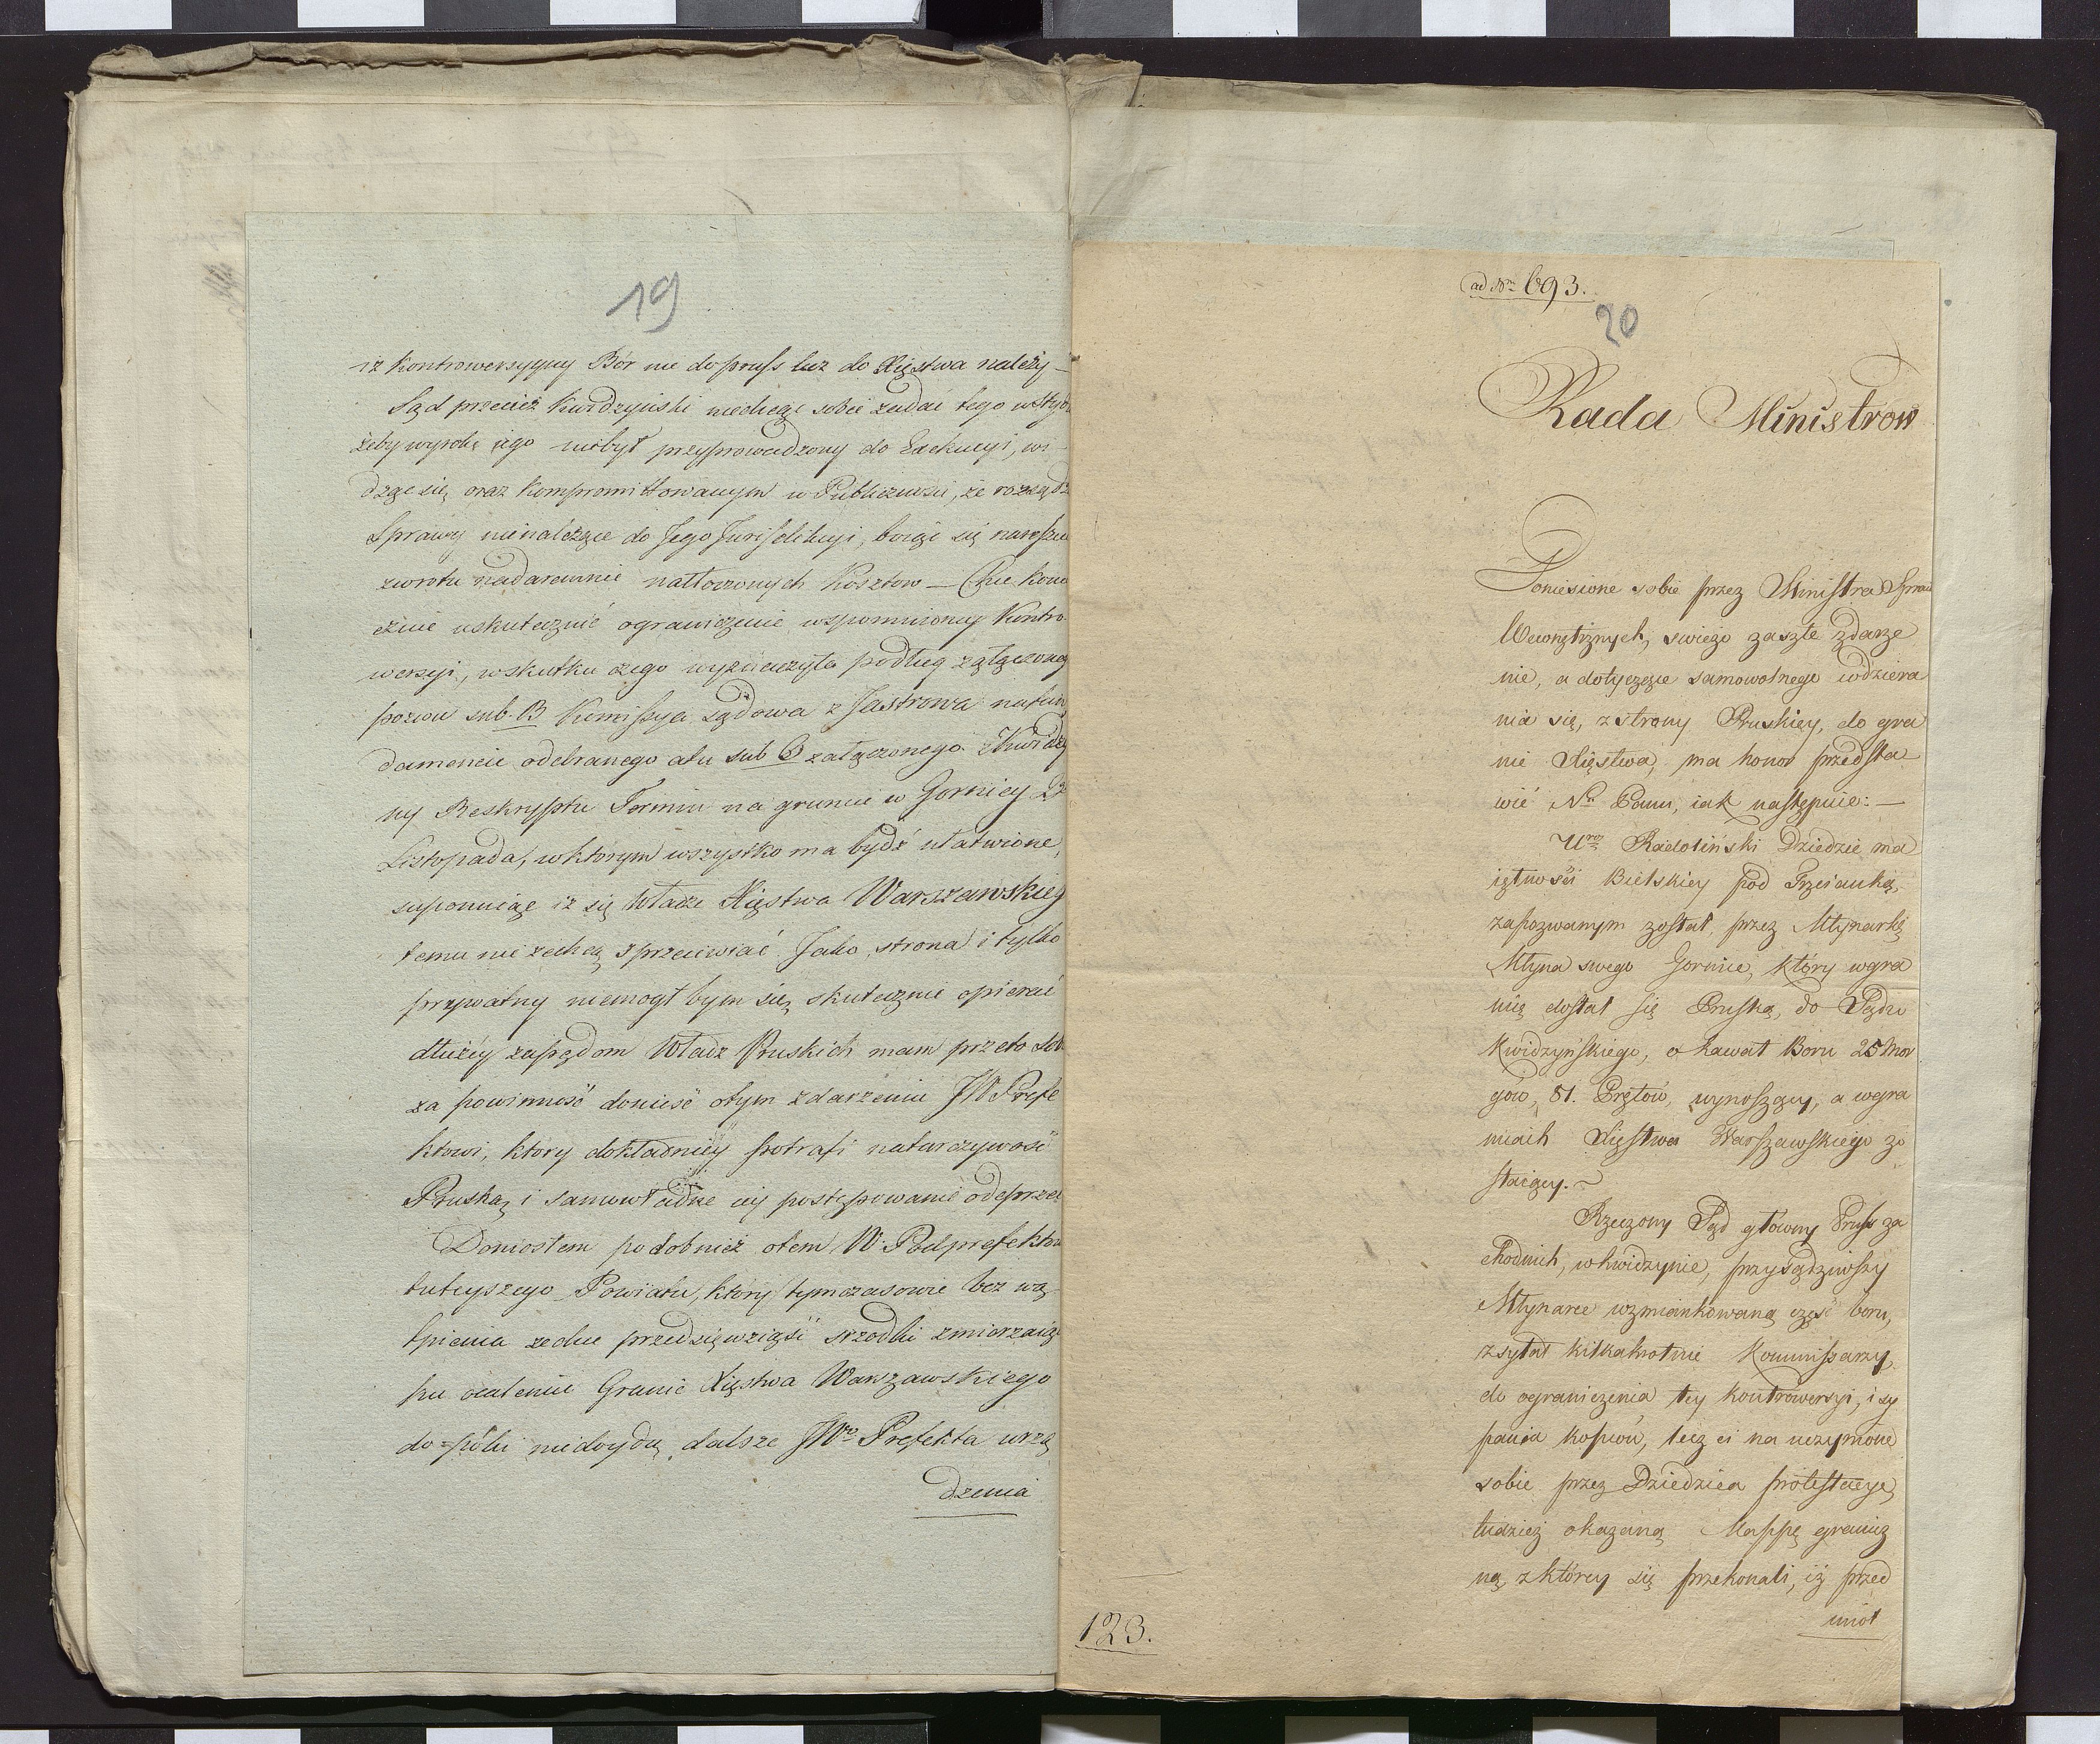 19
iż kontrowersyyny Bór nie do pruss lecz do Xięstwa należy –
Sąd przecież Kwidzyński niechcąc sobie zadać tego
żeby wyrok iego niebył przyprowadzony do Exekucyi, wi-
dząc się oraz kompromittowanym w Publiczności, że rozsądz
Sprawy nienależące do Jego Jurisdikcyi, boiąc się
zwrotu nadaremnie natłoczonych Kosztow – Chce kone
cznie uskutecznić ograniczenie wspomnioney Kontro-
wersyi, w skutku czego wyznaczyła podług załączoneg
pozwu sub. B Kommissya sądowa z Jastrowa na fun
damencie odebranego aktu sub C załączonego z Kwidzy
ny Reskryptu Termin na gruncie w Gorniey
Listopada, w ktorym wszystko ma bydź ułatwione,
suponuiąc iż się Władze Xięstwa Warszawskieg
temu nie zechcą sprzeciwiać Jako strona i tylko
prywatny niemogł bym się skutecznie opierać
dłużey zapędom Władz Pruskich mam przeto sob
za powinność donieść o tym zdarzeniu JW Prefe
ktowi, ktory dokładniey potrafi natarczywość
Pruską i samowładne iey postępowanie odeprzeć
Doniosłem podobnież o tem W. Podprefektow
tuteyszego Powiatu, który tymczasowie bez wą
tpienia zechce przedsięwziąść srzodki zmierzaią
ku ocaleniu Granic Xięstwa Warszawskiego
do=póki niedoydą dalsze JWo Prefekta urzą
dzenia
ad Nrm 693.
20
Rada Ministrow
Doniesione sobie przez Ministra Spraw
Wewnętrznych, swieżo zaszłe zdarze
nie, a dotyczące samowolnego wdziera
nia się, z strony Pruskiey, do gra
nic Xięstwa, ma honor przedsta
wić Nu Panu, iak następuie: –
Uro Radoliński Dziedzic ma
iętności Bielskiey pod Trzcianką,
zapozwanym został, przez Młynarkę
Młyna swego Gornice, który w gra
nicę dostał się Pruską, do Sądu
Kwidzyńskiego, o kawał Boru 25 Mor
gów, 81. Prętów, wynoszący, a w gra
nicach Xięstwa Warszawskiego zo
staiący. ~
Rzeczony Sąd główny Pruss za
chodnich, w Kwidzynie, przysądziwszy
Młynarce wzmiankowaną część boru,
zsyłał kilkakrotnie Kommissarzy,
do ograniczenia tey kontrowersyi, i sy
pania kopców, lecz ci na uczynione
sobie przez Dziedzica protestacye,
tudzież okazaną Mappę granicz
ną, z którey się przekonali, iż przed
miot
123.